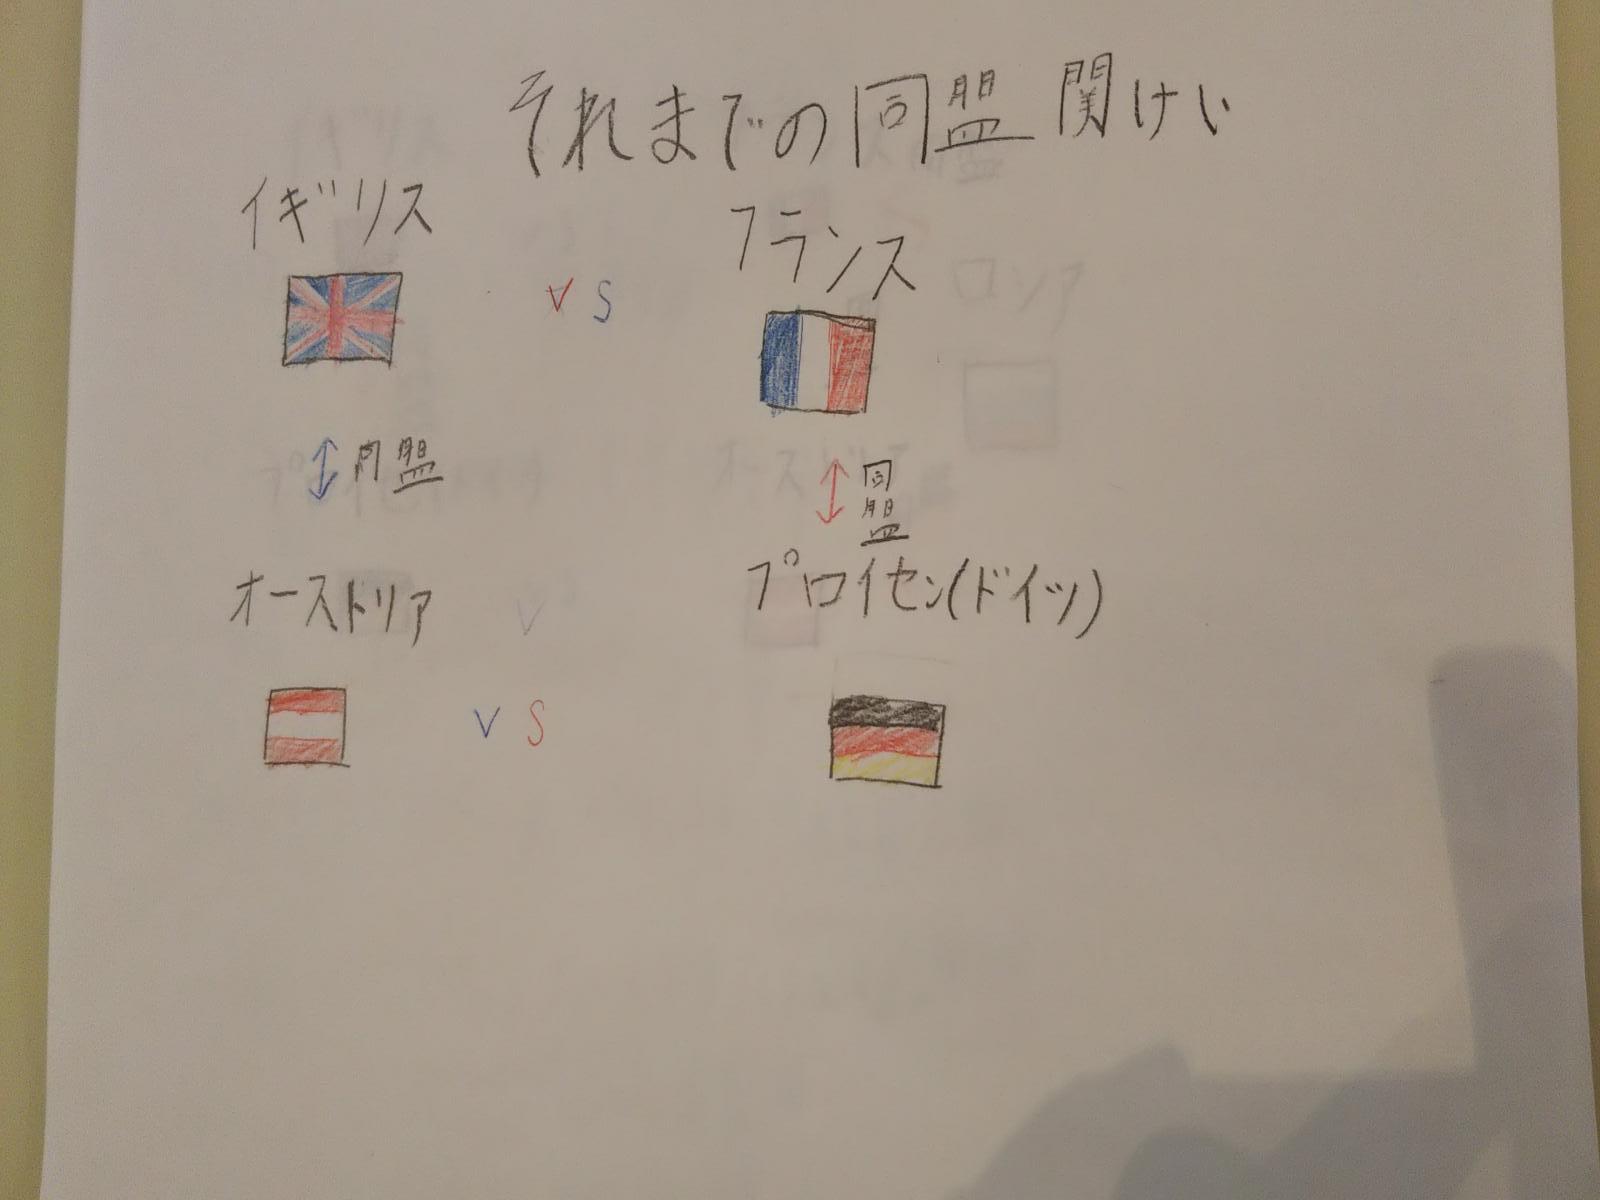 それまでの同盟関けい
イギリス
フランス
VS
同盟
同盟
オーストリア
プロイセン(ドイツ)
VS